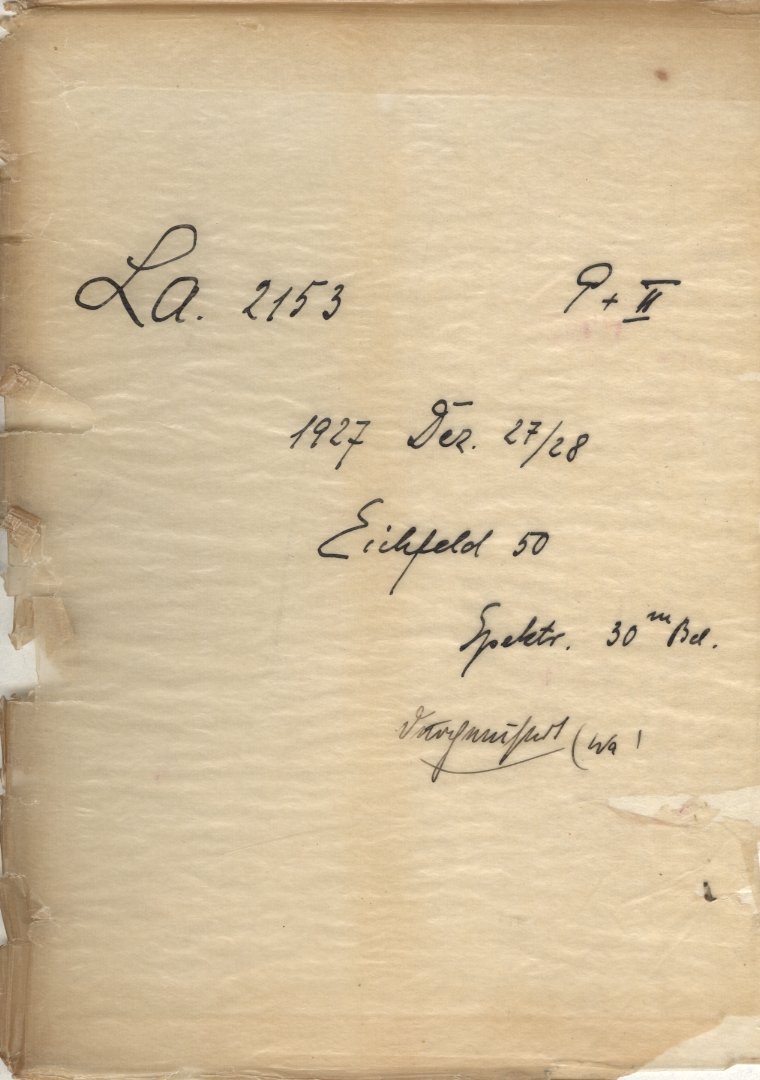 La. 2153 P + II
1927 Dez. 27/28
Eichfeld 50
Spektr. 30ᵐ Bel.
Durchgemustert (Wa)